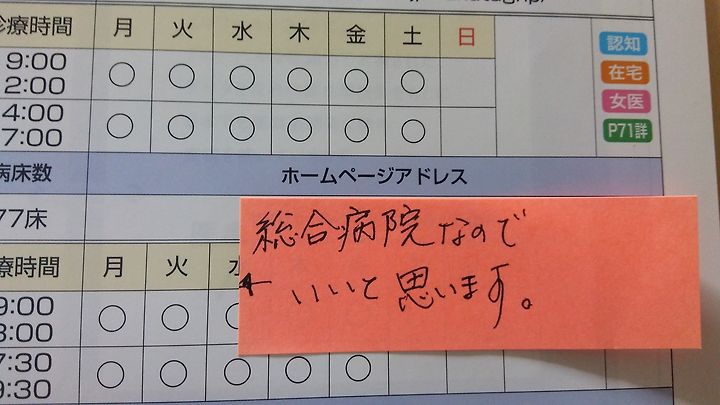 診療時間 月 火 水 木 金 土 日
9:00 ○ ○ ○ ○ ○ ○
2:00
4:00 ○ ○ ○ ○ ○ ○
7:00
認知
在宅
女医
P71詳
病床数 ホームページアドレス
77床
総合病院なので
← いいと思います。
療時間 月 火
9:00 ○ ○
3:00
7:30 ○ ○ ○ ○ ○
9:30